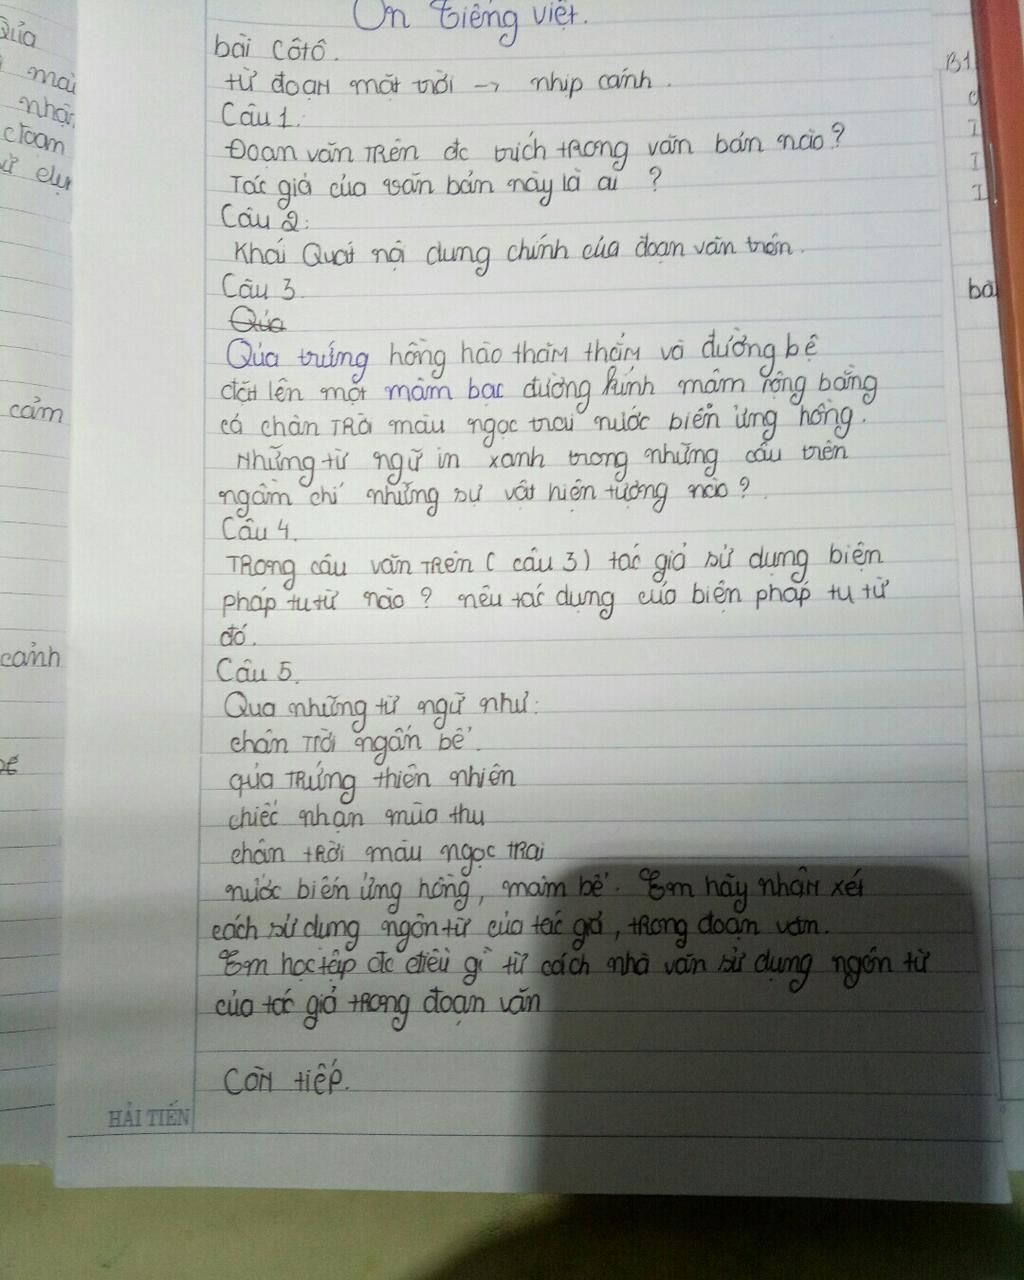 Ôn tiếng việt.
bài côtô.
từ đoạn mặt trời → nhịp cánh.
Câu 1:
Đoạn văn trên đc trích trong văn bản nào?
Tác giả của văn bản này là ai ?
Câu 2:
Khái Quát nội dung chính của đoạn văn trên.
Câu 3.
Qúa
Qủa trứng hồng hào thăm thẳm và đường bệ
đặt lên một mâm bạc đường kính mâm rộng bằng
cả chân trời màu ngọc trai nước biển ửng hồng.
Những từ ngữ in xanh trong những câu trên
ngầm chỉ những sự vật hiện tượng nào?
Câu 4.
Trong câu văn trên ( câu 3) tác giả sử dụng biện
pháp tu từ nào ? nêu tác dụng của biện pháp tu từ
đó.
Câu 5.
Qua những từ ngữ như:
chân trời ngấn bể.
qủa trứng thiên nhiên
chiếc nhạn mùa thu
chân trời màu ngọc trai
nước biển ửng hồng, mâm bể. Em hãy nhận xét
cách sử dụng ngôn từ của tác giả, trong đoạn văn.
Em học tập đc điều gì từ cách nhà văn sử dụng ngôn từ
của tác giả trong đoạn văn
Còn tiếp.
HẢI TIẾN
Qủa
mai
nhận
cảm
cảnh
B1
bài